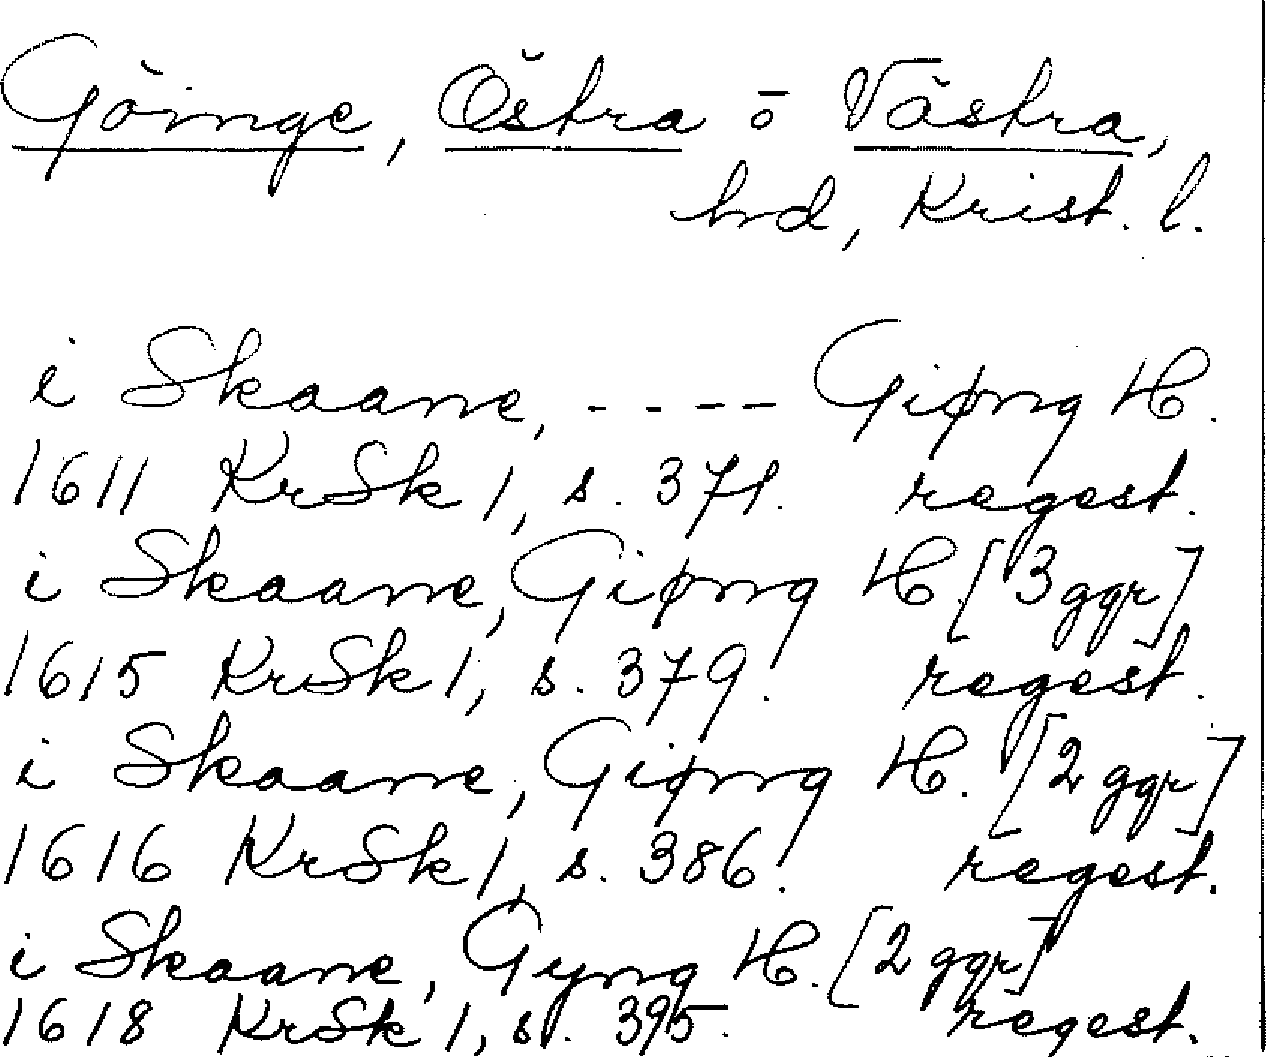 Göinge, Östra o Västra,
hd, Krist. l.
i Skaane, - - - - Giøng H.
1611 KrSk 1, s. 371. regest.
i Skaane, Giøng H. [3 ggr]
1615 KrSk 1, s. 379. regest.
i Skaane, Giøng H. [2 ggr]
1616 KrSk 1, s. 386. regest.
i Skaane, Gyng H. [2 ggr]
1618 KrSk 1, s. 395. regest.